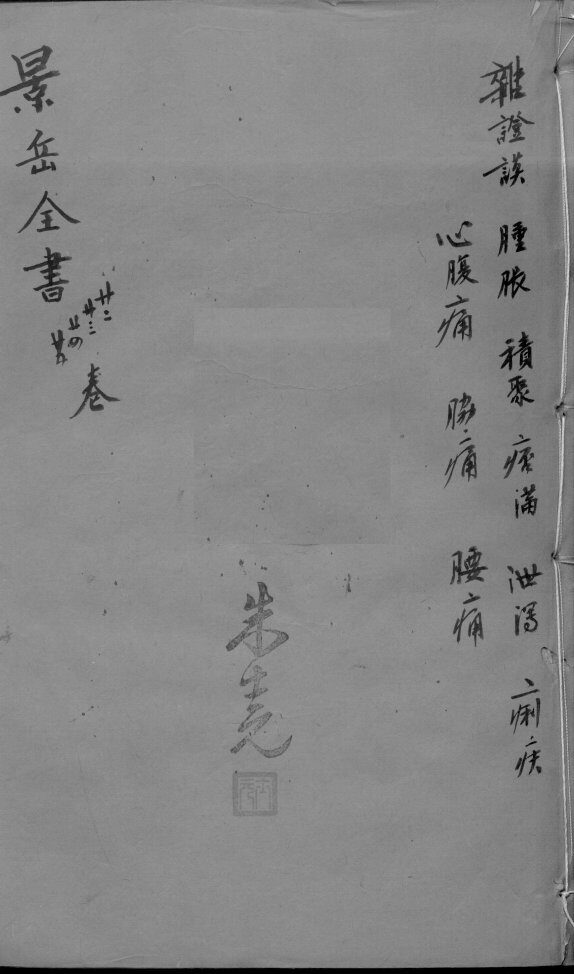 雜證謨 腫脹 積聚 痞滿 泄瀉 痢疾
心腹痛 脇痛 腰痛
朱
景岳全書 廿二 廿三 廿四 廿五 卷